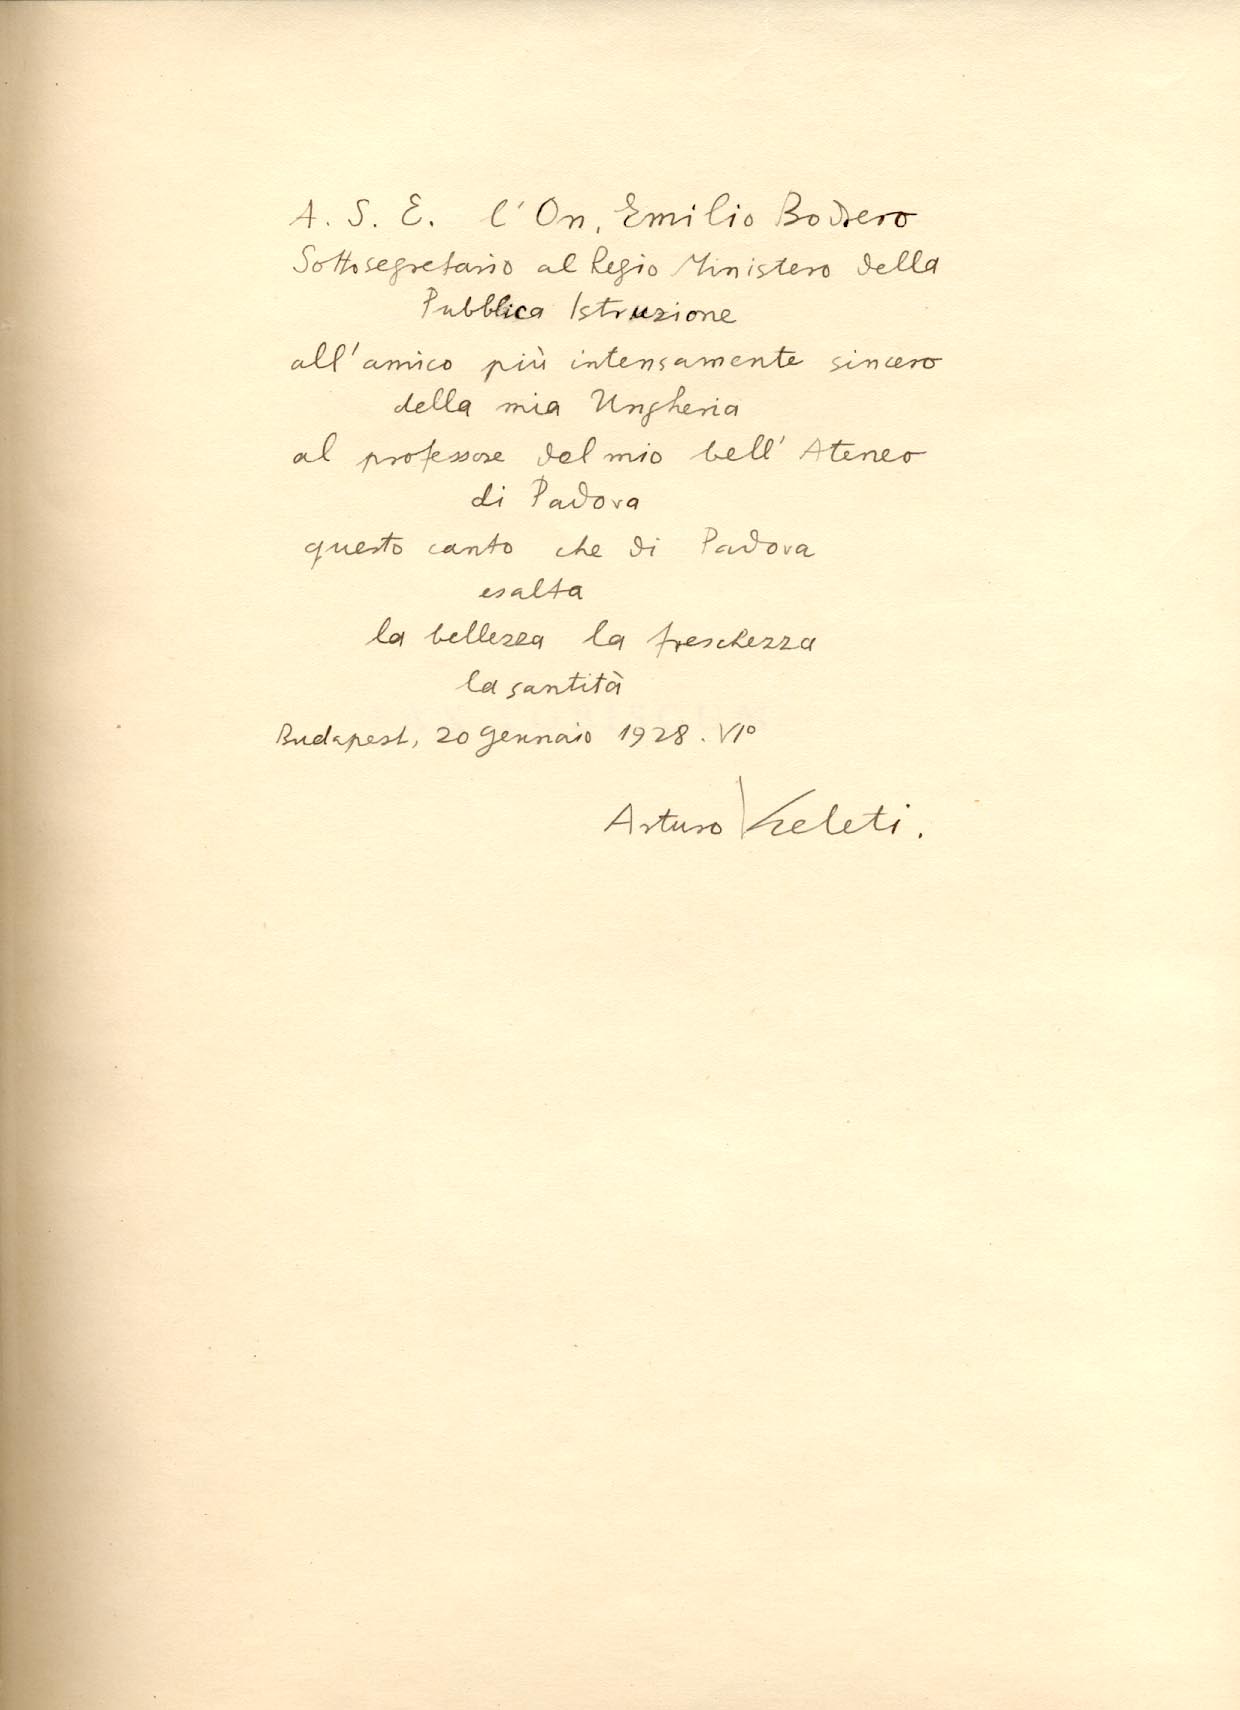 A. S. E. l'On. Emilio Bodrero
Sottosegretario al Regio Ministero della
Pubblica Istruzione
all'amico più intensamente sincero
della mia Ungheria
al professore del mio bell'Ateneo
di Padova
questo canto che di Padova
esalta
la bellezza la freschezza
la santità
Budapest, 20 gennaio 1928. VI°
Arturo Keleti.